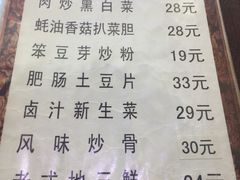 肉炒黑白菜 28元
蚝油香菇扒菜胆 28元
笨豆芽炒粉 19元
肥肠土豆片 33元
卤汁新生菜 29元
风味炒骨 30元
老式地三鲜 24元